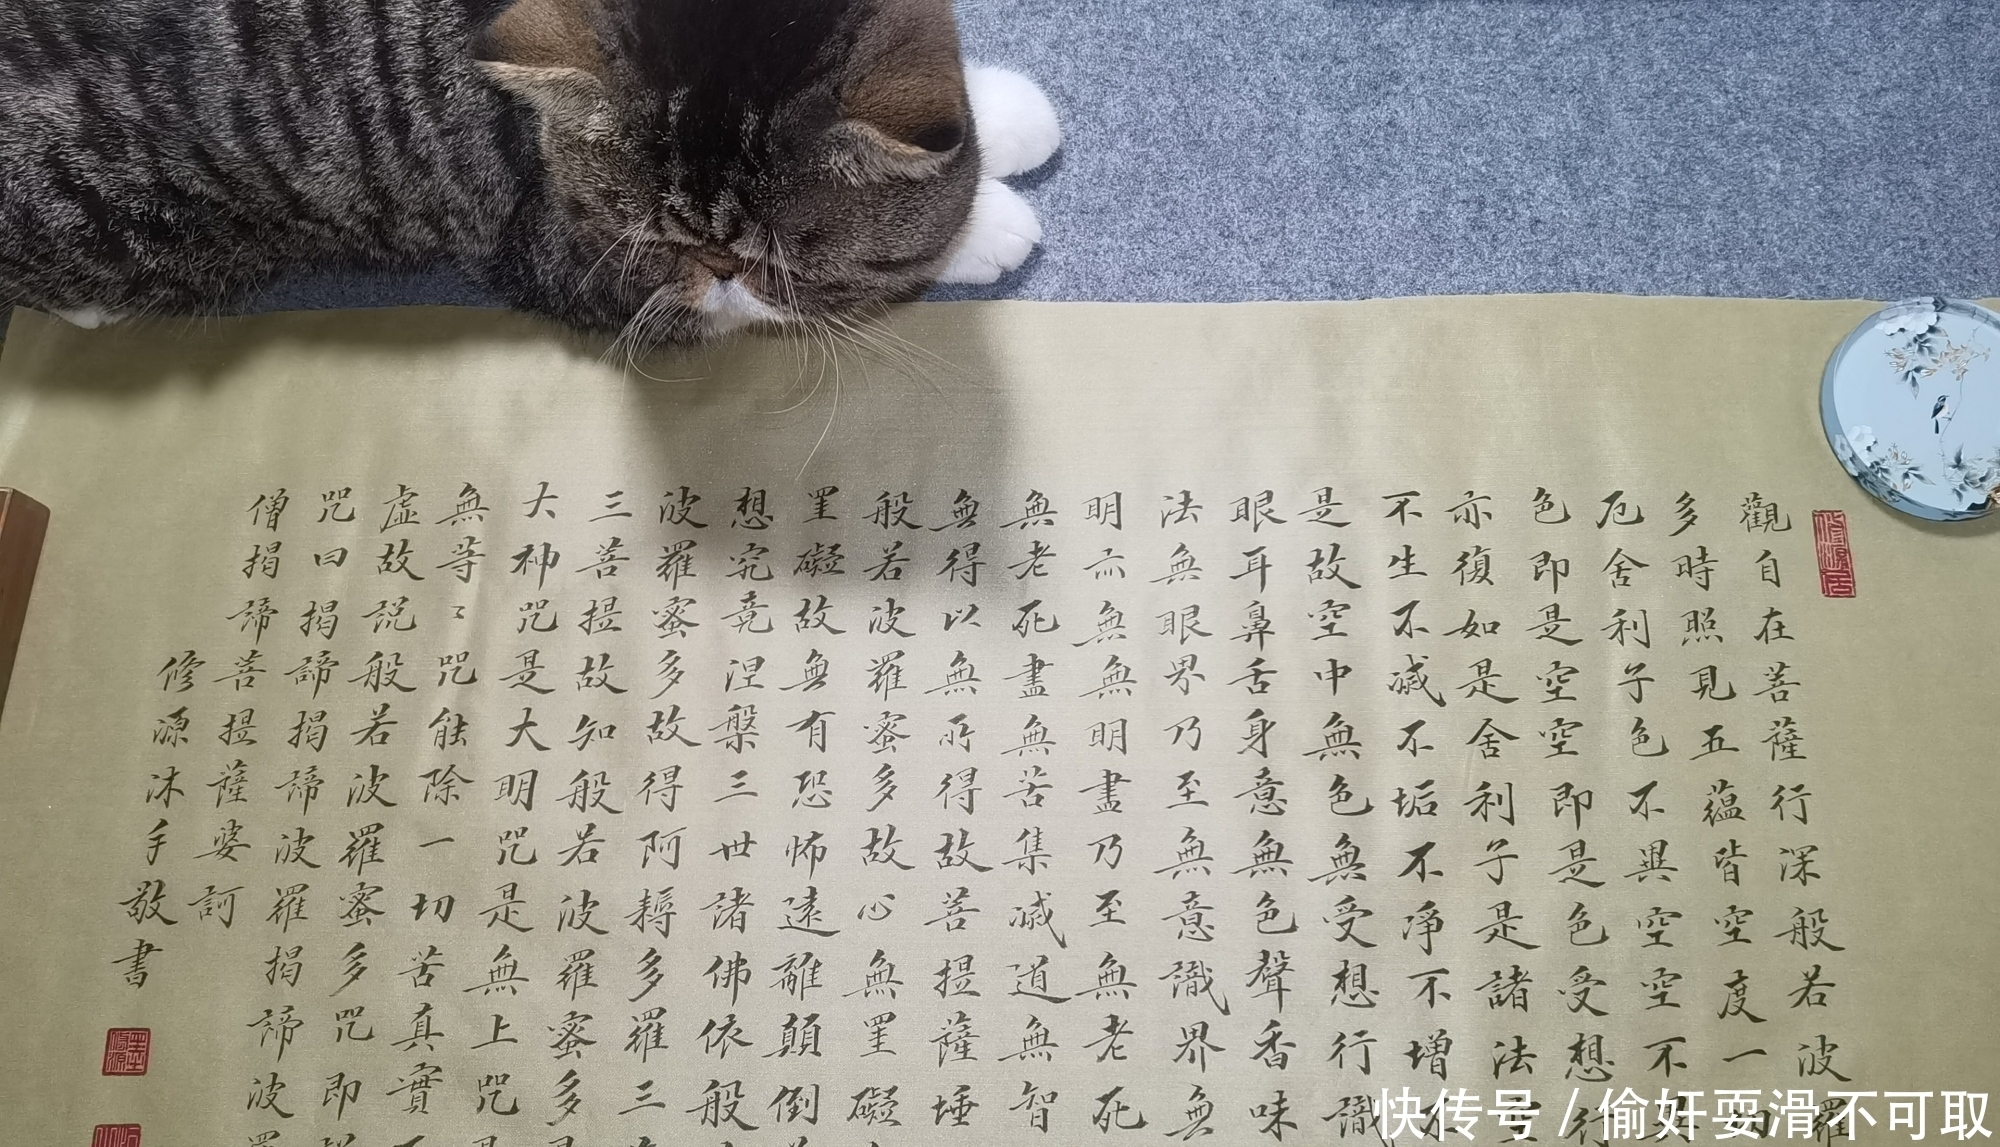 觀自在菩薩行深般若波羅
多時照見五蘊皆空度一切
厄舍利子色不異空空不異
色即是空空即是色受想行
亦復如是舍利子是諸法空
不生不滅不垢不淨不增不
是故空中無色無受想行識
眼耳鼻舌身意無色聲香味
法無眼界乃至無意識界無
明亦無無明盡乃至無老死
無老死盡無苦集滅道無智
無得以無所得故菩提薩埵
般若波羅蜜多故心無罣礙
罣礙故無有恐怖遠離顛倒
想究竟涅槃三世諸佛依般
波羅蜜多故得阿耨多羅三
三菩提故知般若波羅蜜多
大神咒是大明咒是無上咒
無等〻咒能除一切苦真實
虛故説般若波羅蜜多咒即
咒曰揭諦揭諦波羅揭諦波羅
僧揭諦菩提薩婆訶
修源沐手敬書
快传号 / 偷奸耍滑不可取